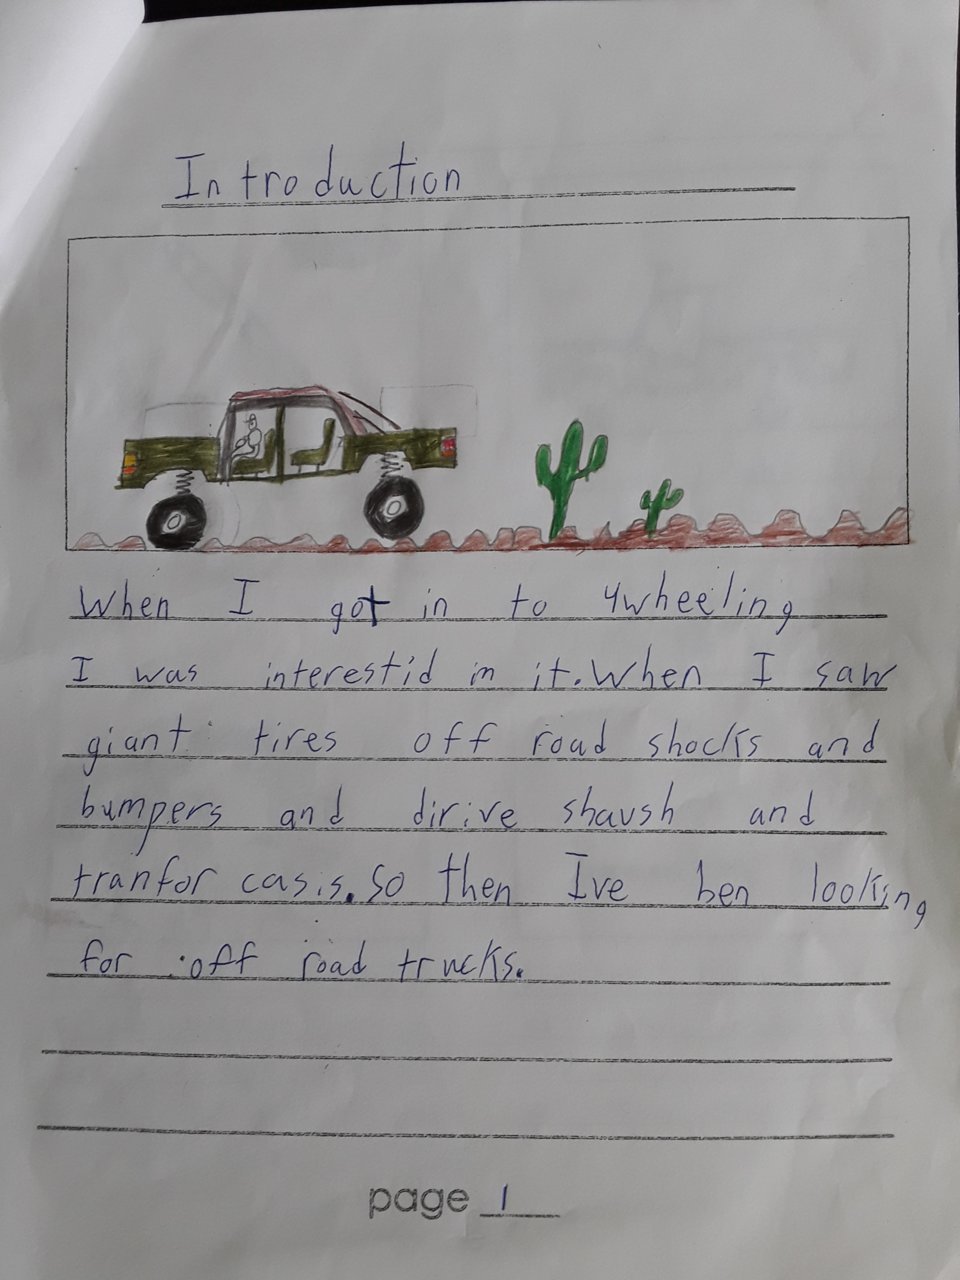 Introduction
When I got in to 4wheeling
I was interestid in it. When I saw
giant tires off road shocks and
bumpers and dirive shaush and
tranfor casis. So then Ive ben looking
for off road trucks.
page 1